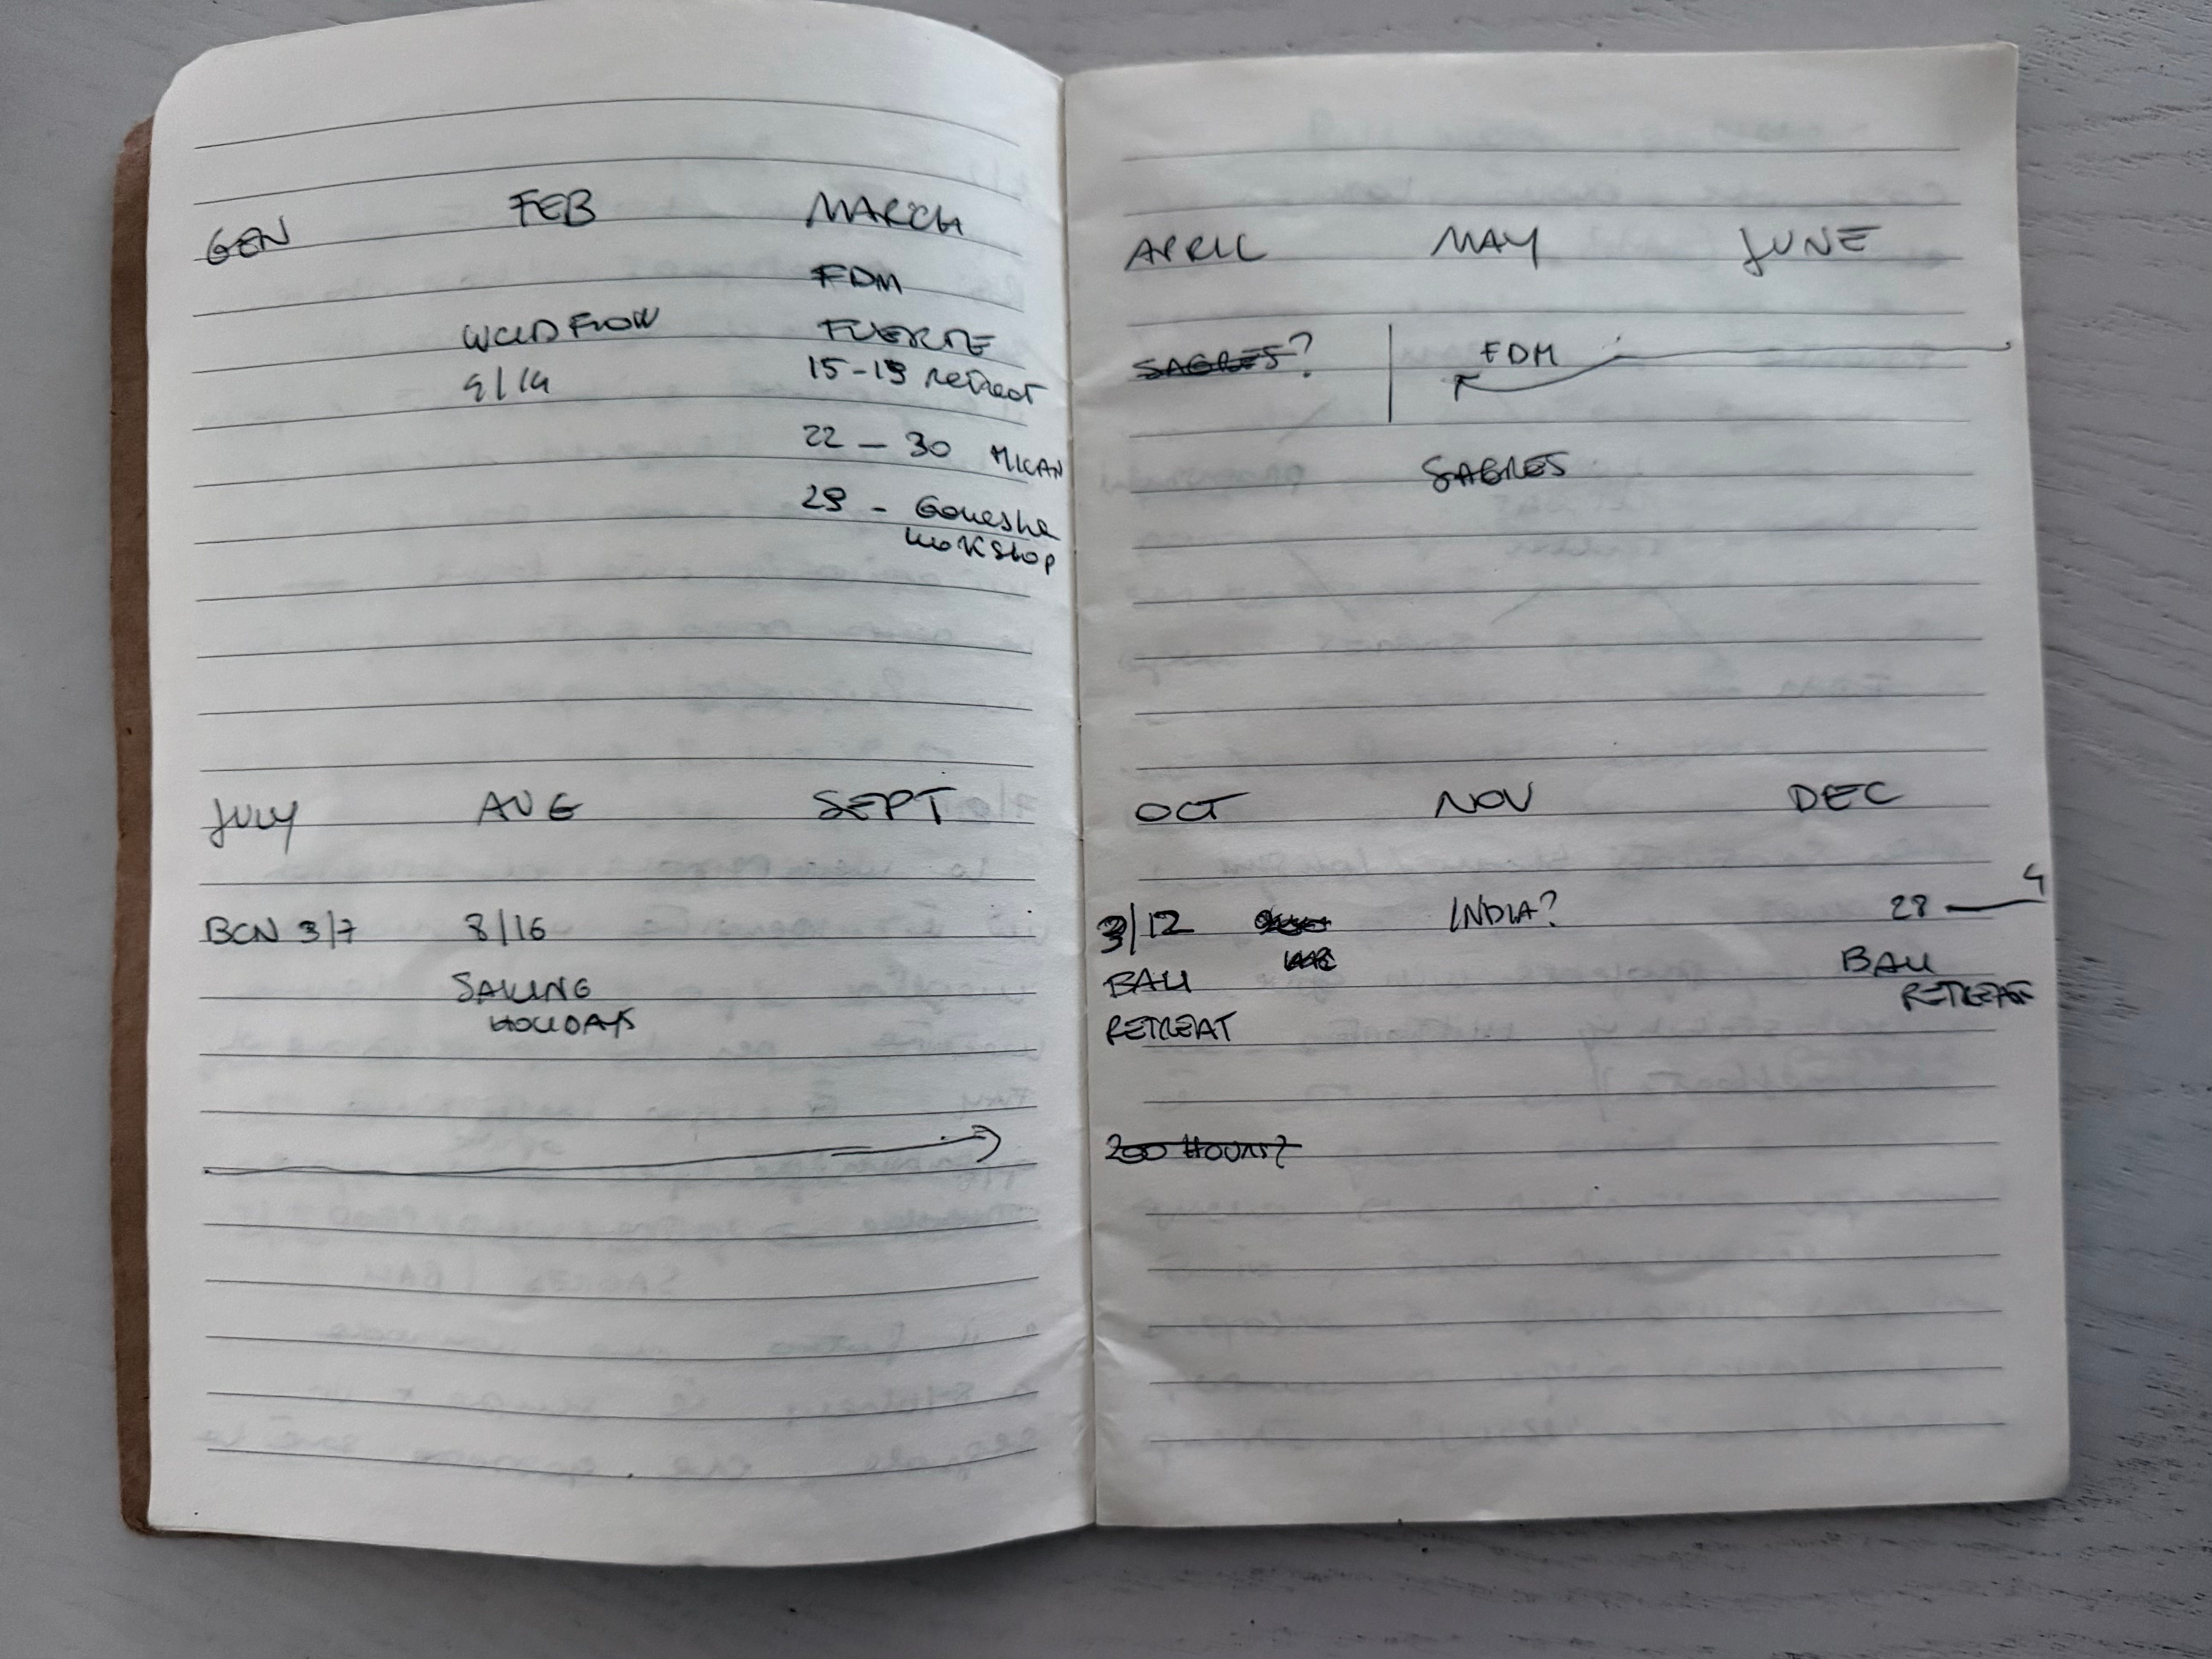 GEN FEB MARCH
FDM
WILD FLOW FUERTE
9/14 15-19 retreat
22 - 30 MILAN
29 - Ganesha
workshop
JULY AUG SEPT
BCN 3/7 8/16
SAILING
HOLIDAYS
APRIL MAY JUNE
SAGRES? FDM
SAGRES
OCT NOV DEC
3/12 INDIA? 28 — 4
BALI BALI
RETREAT RETREAT
200 HOURS?